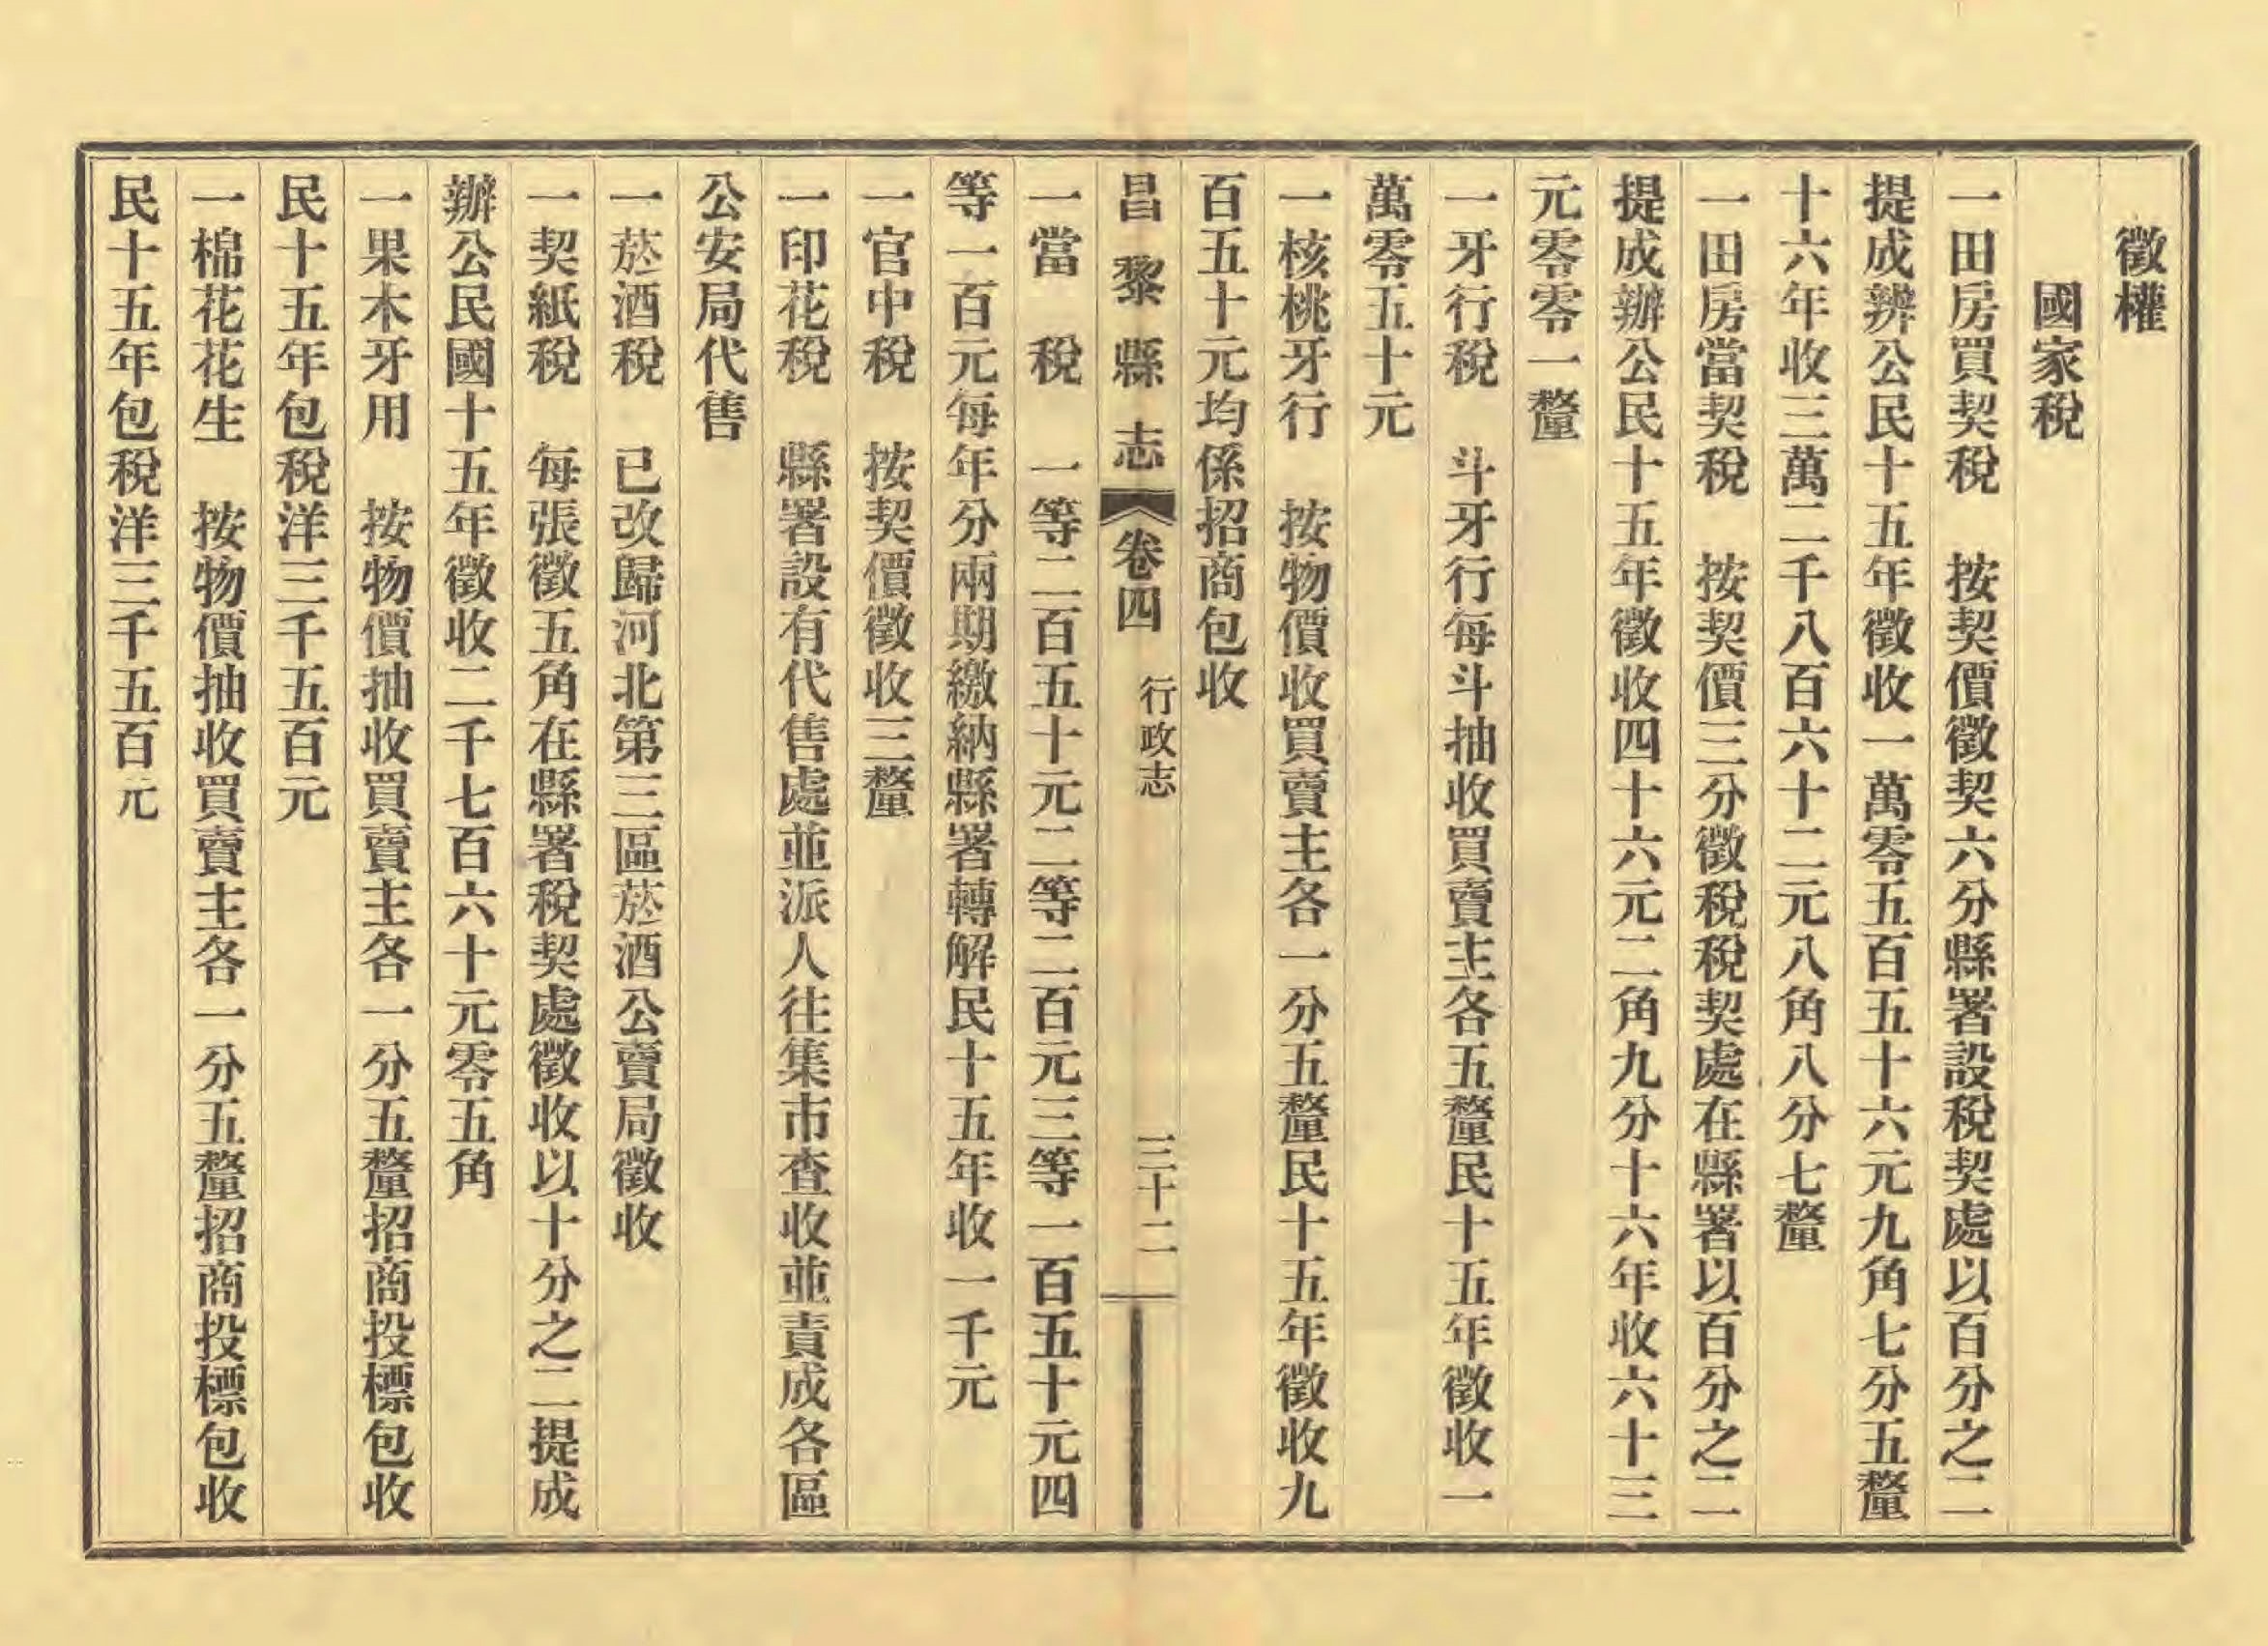 徵權
國家稅
一田房買契稅　按契價徵契六分縣署設稅契處以百分之二
提成辦公民十五年徵收一萬零五百五十六元九角七分五釐
十六年收三萬二千八百六十二元八角八分七釐
一田房當契稅　按契價三分徵稅稅契處在縣署以百分之二
提成辦公民十五年徵收四十六元二角九分十六年收六十三
元零零一釐
一牙行稅　斗牙行每斗抽收買賣主各五釐民十五年徵收一
萬零五十元
一核桃牙行　按物價收買賣主各一分五釐民十五年徵收九
百五十元均係招商包收
昌黎縣志　卷四　行政志　三十二
一當　稅　一等二百五十元二等二百元三等一百五十元四
等一百元每年分兩期繳納縣署轉解民十五年收一千元
一官中稅　按契價徵收三釐
一印花稅　縣署設有代售處並派人往集市查收並責成各區
公安局代售
一菸酒稅　已改歸河北第三區菸酒公賣局徵收
一契紙稅　每張徵五角在縣署稅契處徵收以十分之二提成
辦公民國十五年徵收二千七百六十元零五角
一果木牙用　按物價抽收買賣主各一分五釐招商投標包收
民十五年包稅洋三千五百元
一棉花花生　按物價抽收買賣主各一分五釐招商投標包收
民十五年包稅洋三千五百元